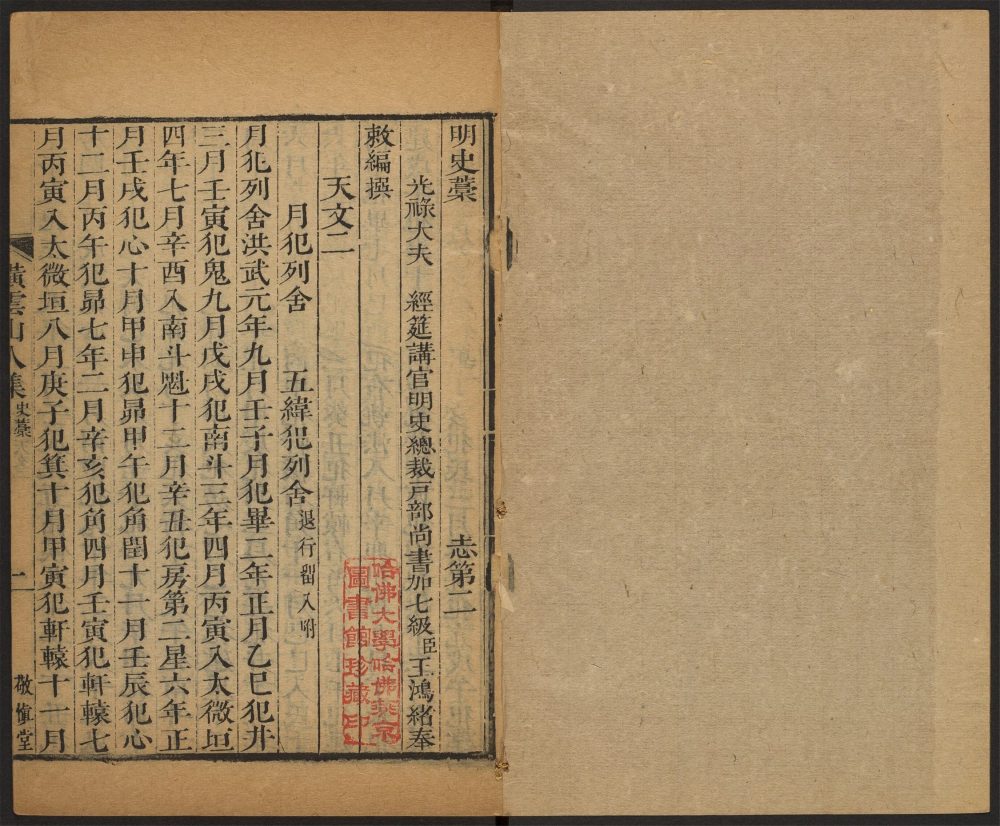 明史藁　志第二
光祿大夫　經筵講官明史總裁戸部尚書加七級臣王鴻緒奉
敕編撰
天文二
月犯列舍　五緯犯列舍退行留入附
月犯列舍洪武元年九月壬子月犯畢二年正月乙巳犯井
三月壬寅犯鬼九月戊戌犯南斗三年四月丙寅入太微垣
四年七月辛酉入南斗魁十二月辛丑犯房第二星六年正
月壬戌犯心十月甲申犯昴甲午犯角閏十一月壬辰犯心
十二月丙午犯昴七年二月辛亥犯角四月壬寅犯軒轅七
月丙寅入太微垣八月庚子犯箕十月甲寅犯軒轅十一月
橫雲山人集　史藁　一　敬愼堂
哈佛大學哈佛燕京
圖書館珍藏印